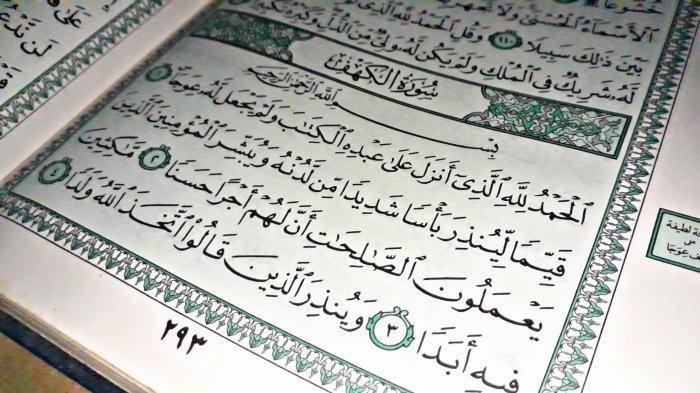 ٱلْأَسْمَآءُ ٱلْحُسْنَىٰ وَلَا تَجْهَرْ
بَيْنَ ذَٰلِكَ سَبِيلًا ١١٠ وَقُلِ ٱلْحَمْدُ لِلَّهِ ٱلَّذِى
لَّهُۥ شَرِيكٌ فِى ٱلْمُلْكِ وَلَمْ يَكُن لَّهُۥ وَلِىٌّ مِّنَ ٱلذُّلِّ وَكَبِّرْهُ تَكْبِيرًۢا
سُورَةُ الكَهْفِ
بِسْمِ ٱللَّهِ ٱلرَّحْمَٰنِ ٱلرَّحِيمِ
ٱلْحَمْدُ لِلَّهِ ٱلَّذِىٓ أَنزَلَ عَلَىٰ عَبْدِهِ ٱلْكِتَٰبَ وَلَمْ يَجْعَل لَّهُۥ عِوَجَا ١
قَيِّمًا لِّيُنذِرَ بَأْسًا شَدِيدًا مِّن لَّدُنْهُ وَيُبَشِّرَ ٱلْمُؤْمِنِينَ ٱلَّذِينَ
يَعْمَلُونَ ٱلصَّٰلِحَٰتِ أَنَّ لَهُمْ أَجْرًا حَسَنًا ٢ مَّٰكِثِينَ
فِيهِ أَبَدًا ٣ وَيُنذِرَ ٱلَّذِينَ قَالُوا۟ ٱتَّخَذَ ٱللَّهُ وَلَدًا ٤
٢٩٣